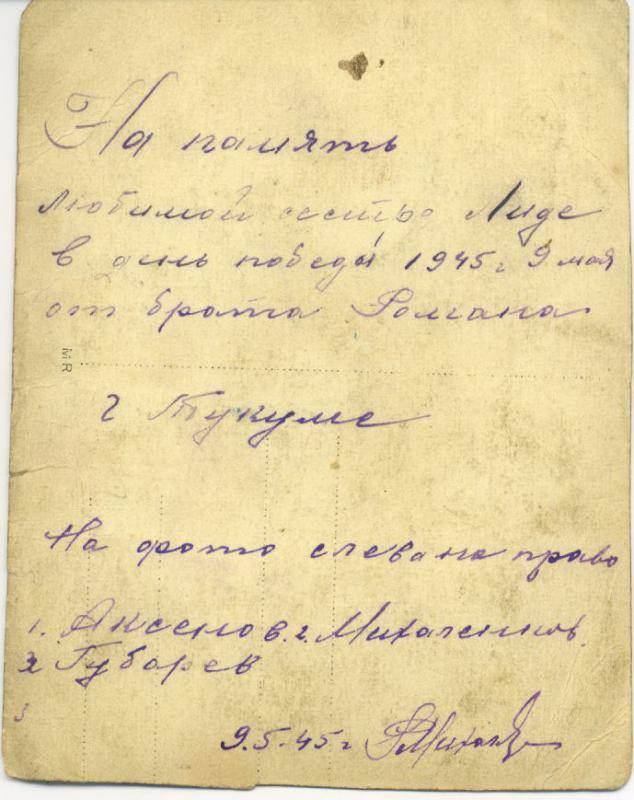 На память
любимой сестре Лиде
в день победы 1945 г 9 мая
от брата Романа
MR
г Тукумс
На фото слева на право
1. Аксенов. 2. Михаленков.
3 Губарев
3
9.5.45 г